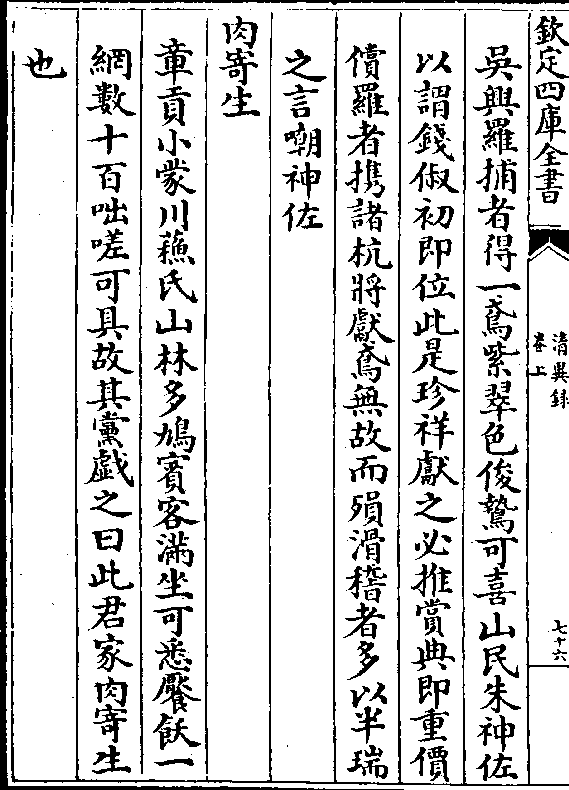 欽定四庫全書
清異錄
卷上
七十六
吳興羅捕者得一鳶紫翠色俊鷙可喜山民朱神佐
以謂錢俶初即位此是珍祥獻之必推賞典即重價
償羅者攜諸杭將獻鳶無故而殞滑稽者多以半瑞
之言嘲神佐
肉寄生
章貢小蒙川蘓氏山林多鳩賓客滿坐可悉饜飫一
網數十百咄嗟可具故其黨戱之曰此君家肉寄生
也